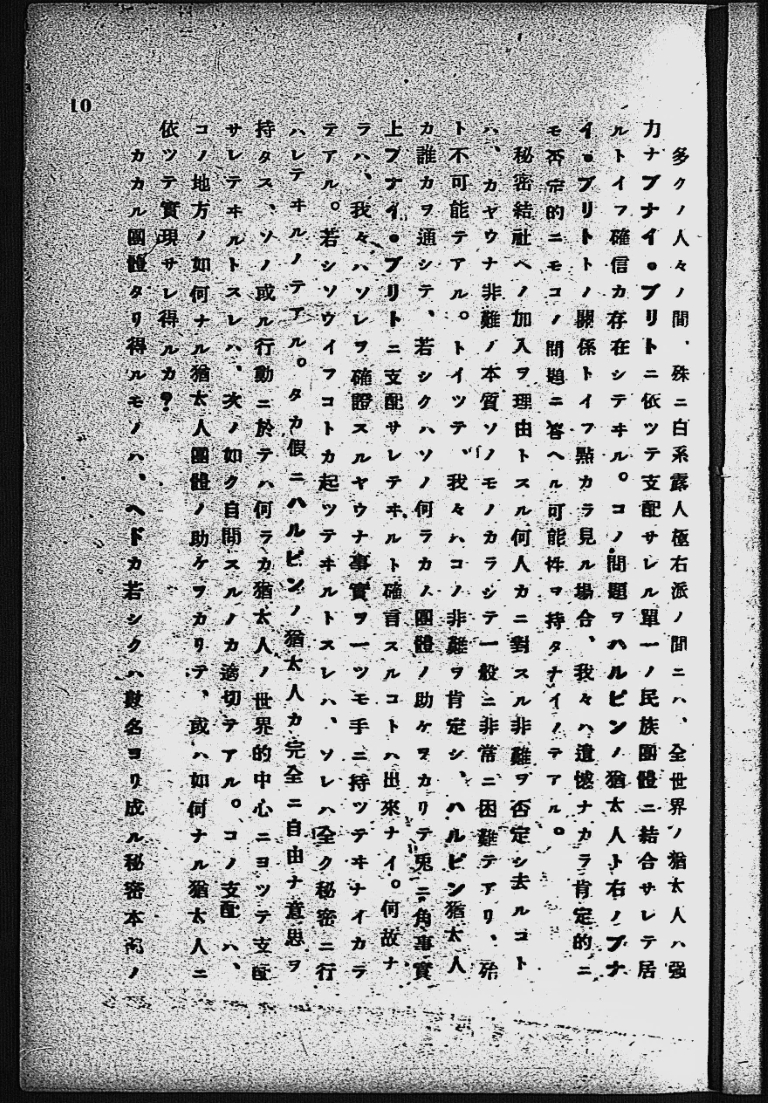 多クノ人々ノ間、殊ニ白系露人極右派ノ間ニハ、全世界ノ猶太人ハ強
力ナブナイ・ブリトニ依ツテ支配サレル單一ノ民族團體ニ結合サレテ居
ルトイフ確信カ存在シテヰル。コノ問題ヲハルビンノ猶太人ト右ノブナ
イ・ブリトトノ關係トイフ點カラ見ル場合、我々ハ遺憾ナカラ肯定的ニ
モ否定的ニモコノ問題ニ答ヘル可能性ヲ持タナイノテアル。
秘密結社ヘノ加入ヲ理由トスル何人カニ對スル非難ヲ否定シ去ルコト
ハ、カヤウナ非難ノ本質ソノモノカラシテ一般ニ非常ニ困難テアリ、殆
ト不可能テアル。トイツテ、我々ハコノ非難ヲ肯定シ、ハルビン猶太人
カ誰カヲ通シテ、若シクハソノ何ラカノ團體ノ助ケヲカリテ兎ニ角事實
上ブナイ・ブリトニ支配サレテヰルト確言スルコトハ出來ナイ。何故ナ
ラハ、我々ハソレヲ確證スルヤウナ事實ヲ一ツモ手ニ持ツテヰナイカラ
テアル。若シソウイフコトカ起ツテヰルトスレハ、ソレハ全ク秘密ニ行
ハレテヰルノテアル。タカ假ニハルビンノ猶太人カ完全ニ自由ナ意思ヲ
持タス、ソノ或ル行動ニ於テハ何ラカ猶太人ノ世界的中心ニヨツテ支配
サレテヰルトスレハ、次ノ如ク自問スルノカ適切テアル。コノ支配ハ、
コノ地方ノ如何ナル猶太人團體ノ助ケヲカリテ、或ハ如何ナル猶太人ニ
依ツテ實現サレ得ルカ?
カカル團體タリ得ルモノハ、ヘドカ若シクハ數名ヨリ成ル秘密本部ノ
10